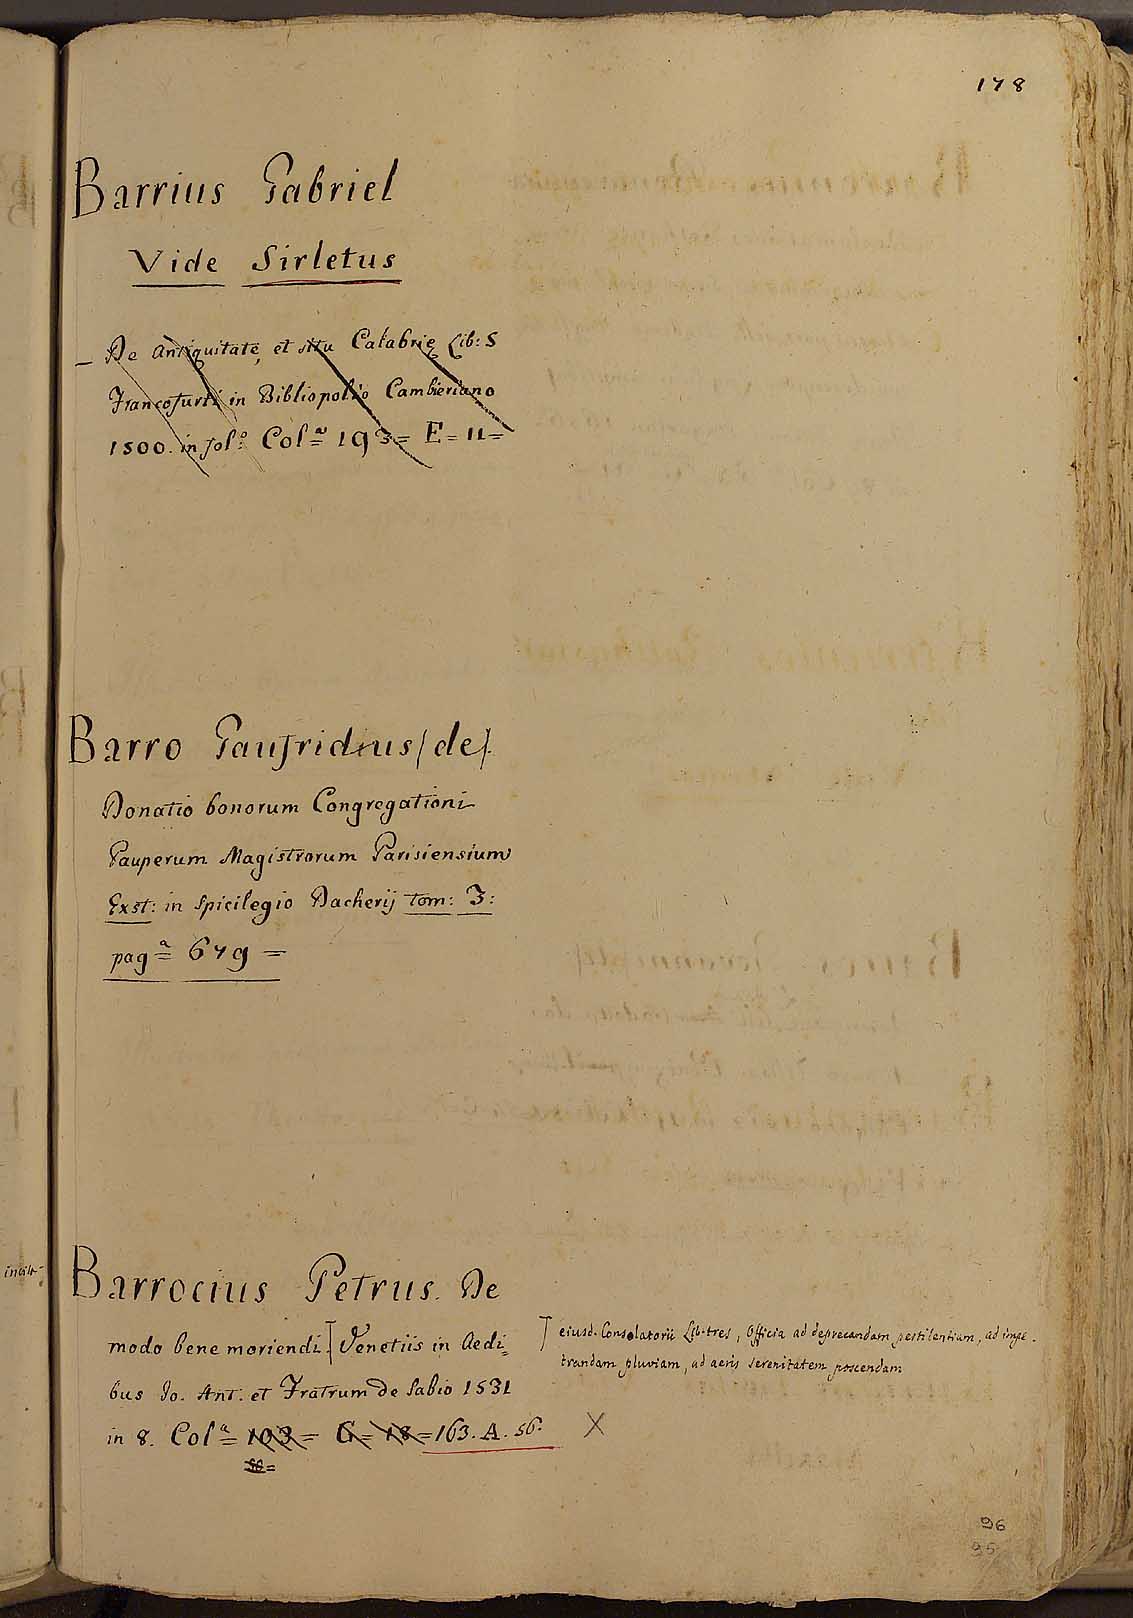 178
Barrius Gabriel
Vide Sirletus
– De Antiquitate, et situ Calabrię Lib: 5
Francofurti in Bibliopolio Cambieriano
1500. in fol.º Col.ª 193= E= 11=
Barro Gaufridius (de).
Donatio bonorum Congregationi
Pauperum Magistrorum Parisiensium
Exst: in Spicilegio Dacherij tom: 3:
pag.ª 679 =
Barrocius Petrus. De
modo bene moriendi.] Venetiis in Aedi=
bus Io. Ant. et Fratrum de Sabio 1531
in 8. Col.ª 193= G= 18= 163. A. 56.
] eiusd. Consolatorii Lib. tres, Officia ad deprecandam pestilentiam, ad impe-
trandam pluviam, ad aeris serenitatem poscendam
X
96
95